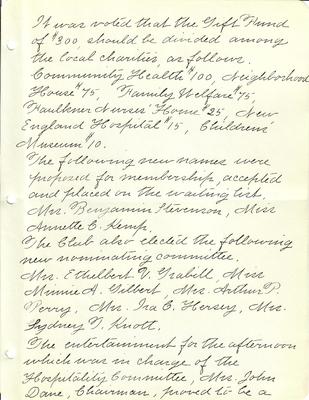 It was voted that the Gift Fund
of $300, should be divided among
the local charities, as follows.
Community Health $100, Neighborhood
House $75, Family Welfare $75,
Faulkner Nurses' Home $25, New
England Hospital $15, Children's
Museum $10.
The following new names were
proposed for membership, accepted
and placed on the waiting list.
Mrs. Benjamin Stevenson, Miss
Annette C. Kemp.
The Club also elected the following
new nominating committee.
Mrs. Ethelbert V. Grabill, Miss
Minnie A. Gilbert, Mrs. Arthur P.
Perry, Mrs. Ira C. Hersey, Mrs.
Sydney T. Knott.
The entertainment for the afternoon
which was in charge of the
Hospitality Committee, Mrs. John
Dane, Chairman, proved to be a